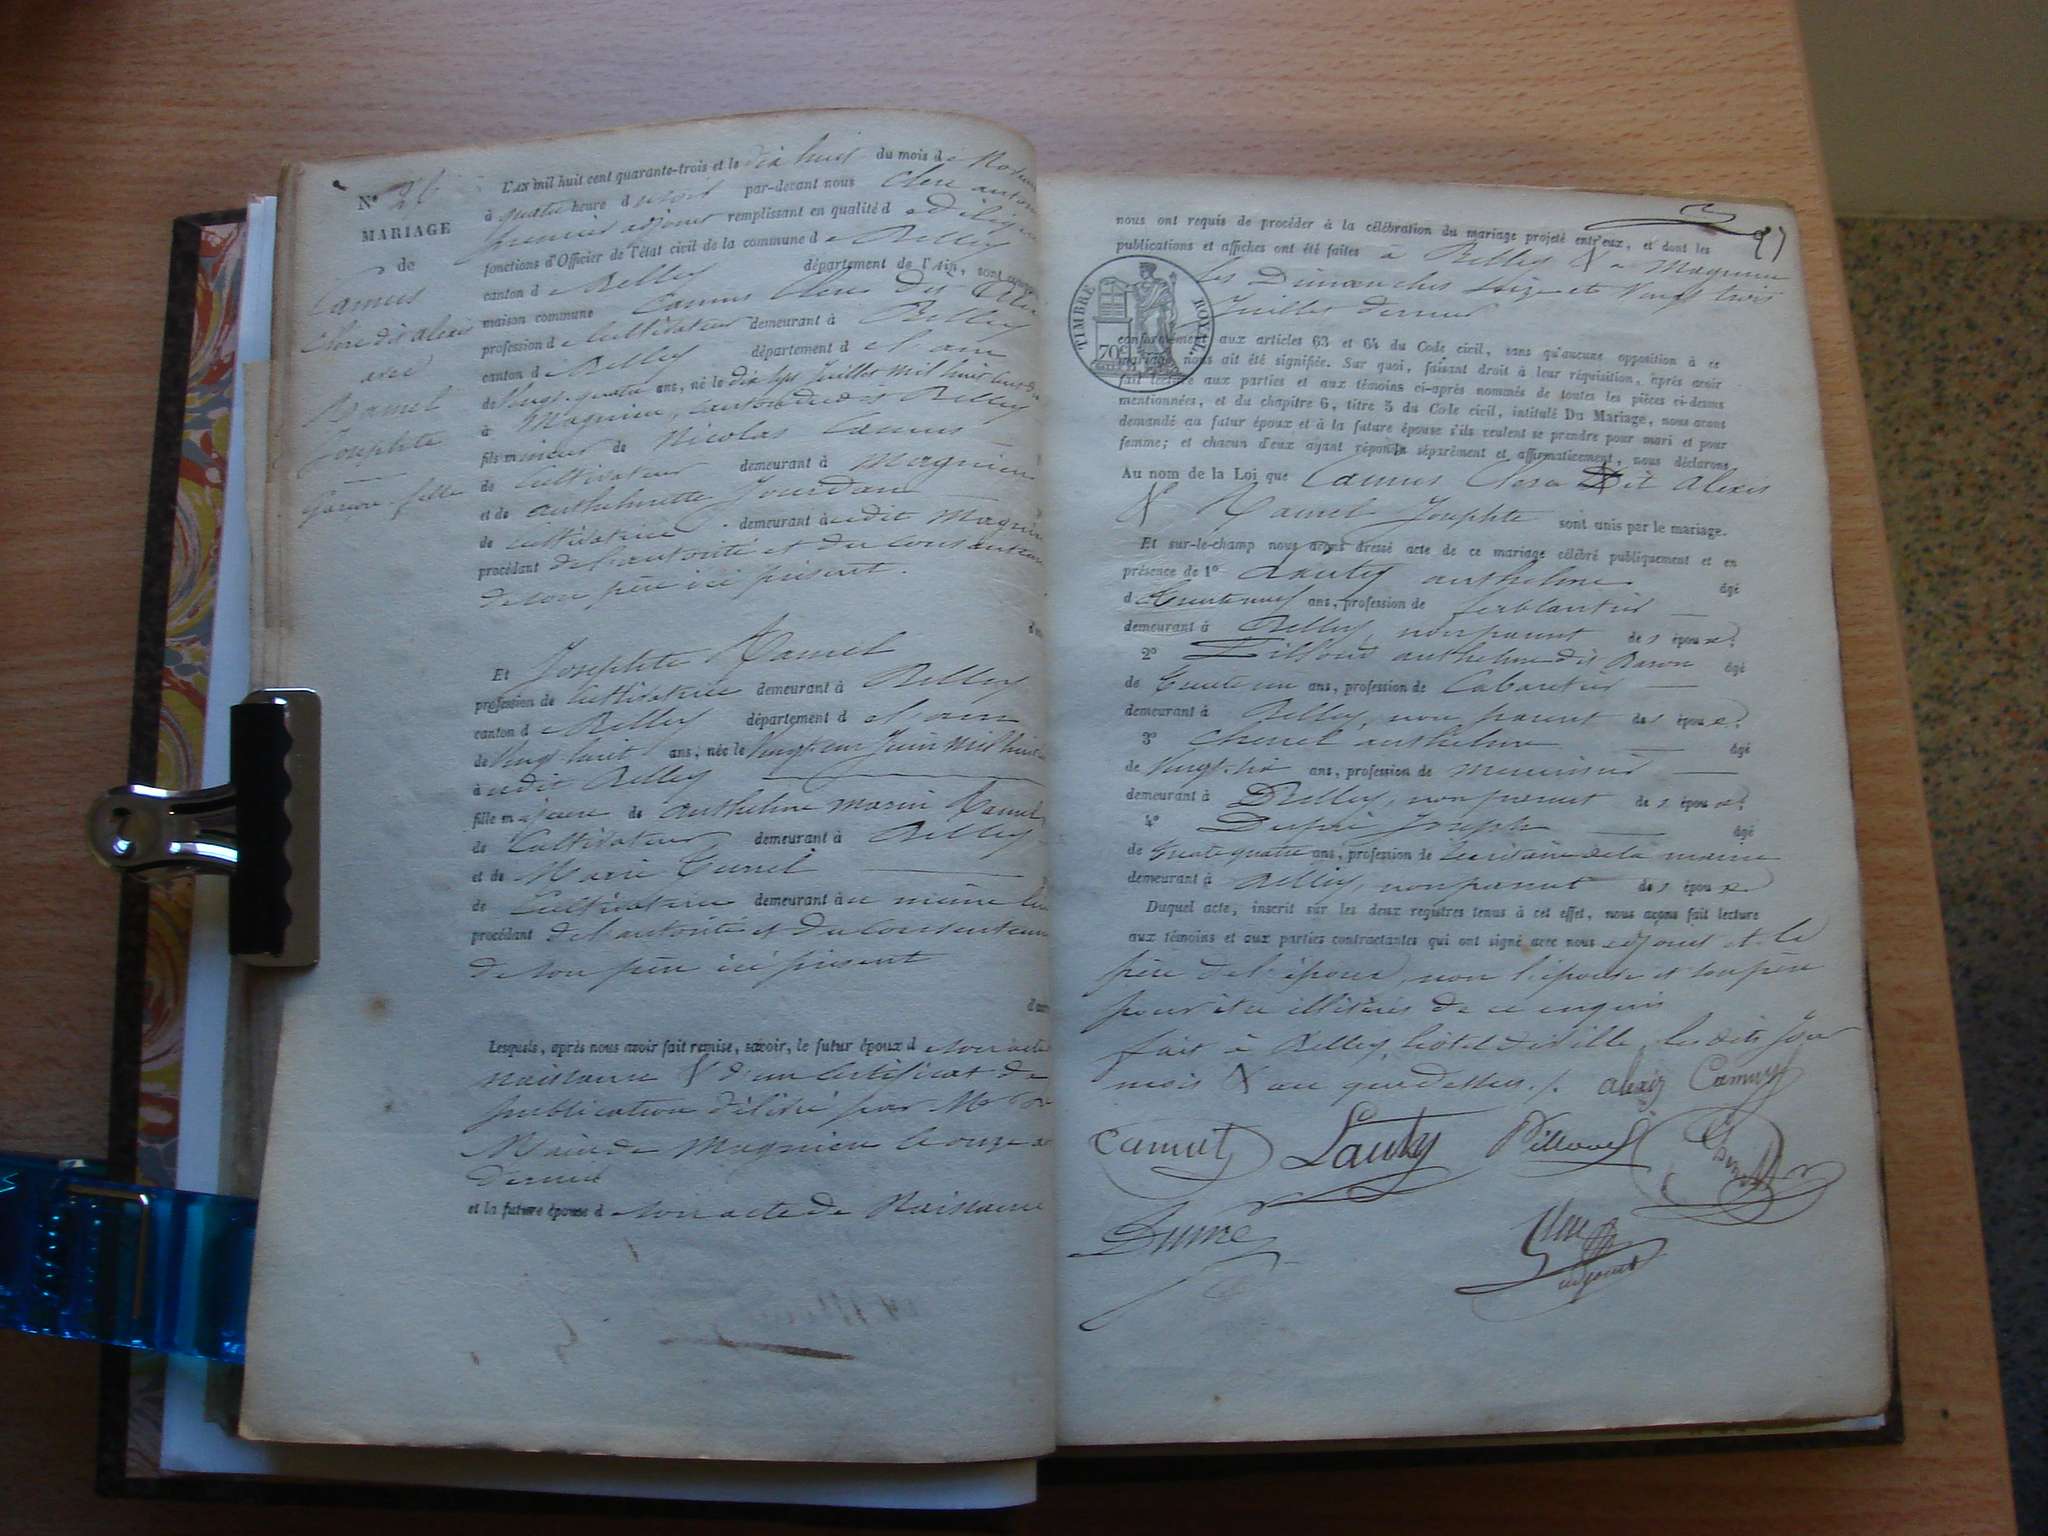 N° 26
MARIAGE
de
Camus
Clere dit alexis
avec
Ramel
Josephte
Garçon fille
L'AN mil huit cent quarante-trois et le dix huit du mois de
à quatre heure d u soir par-devant nous Clerc
premier adjoint remplissant en qualité d
fonctions d'Officier de l'état civil de la commune d e Belley
canton d e Belley département de l'Ain, sont
maison commune Camus Clere dit
profession d e Cultivateur demeurant à Belley
canton d e Belley département d e l'ain
de Vingt-quatre ans, né le dix sept Juillet mil huit cent
à Magnieu, canton dudit Belley
fils mineur de Nicolas Camus
de Cultivateur demeurant à Magnieu
et de anthelmette Jourdan
de cultivatrice demeurant à udit Magnieu
procédant de l'autorité et du
de son père ici présent.
Et Josephte Ramel
profession de cultivatrice demeurant à Belley
canton d e Belley département d e l'ain
de Vingt-huit ans, née le Vingt un Juin mil huit
à udit Belley
fille majeure de anthelme marin Ramel
de Cultivateur demeurant à Belley
et de Marie
de Cultivatrice demeurant à u même lieu
procédant de l'autorité et du
de son père ici présent
Lesquels, après nous avoir fait remise, savoir, le futur époux d e son acte
Naissance & d'un Certificat de
publication délivré par Mr
Maire de Magnieu le onze
dernier
et la future épouse d e son acte de Naissance
nous ont requis de procéder à la célébration du mariage projeté entr'eux, et dont les
publications et affiches ont été faites à Belley & à Magnieu
les Dimanches seize et Vingt trois
Juillet dernier
TIMBRE ROYAL
70c
conformément aux articles 63 et 64 du Code civil, sans qu'aucune opposition à ce
mariage nous ait été signifiée. Sur quoi, faisant droit à leur réquisition, après avoir
fait lecture aux parties et aux témoins ci-après nommés de toutes les pièces ci-dessus
mentionnées, et du chapitre 6, titre 5 du Code civil, intitulé Du Mariage, nous avons
demandé au futur époux et à la future épouse s'ils veulent se prendre pour mari et pour
femme; et chacun d'eux ayant répondu séparément et affirmativement, nous déclarons
Au nom de la Loi que Camus Clere Dit Alexis
& Ramel Josephte sont unis par le mariage.
Et sur-le-champ nous avons dressé acte de ce mariage célébré publiquement et en
présence de 1° Lauty anthelme âgé
d e trente neuf ans, profession de ferblantier
demeurant à Belley, non parent de s époux.
2° anthelme dit Baron âgé
de trente un ans, profession de Cabaretier
demeurant à Belley, non parent de s époux.
3° anthelme âgé
de Vingt-six ans, profession de menuisier
demeurant à Belley, non parent de s époux.
4° Joseph âgé
de trente quatre ans, profession de secrétaire de la mairie
demeurant à Belley, non parent de s époux
Duquel acte, inscrit sur les deux registres tenus à cet effet, nous avons fait lecture
aux témoins et aux parties contractantes qui ont signé avec nous adjoint et le
père de l'époux, non l'épouse et son père
pour être illitérés de ce enquis
fait à Belley, hôtel de ville, les dits jour
mois & an que dessus./. alexis Camus
Camus Lauty
adjoint